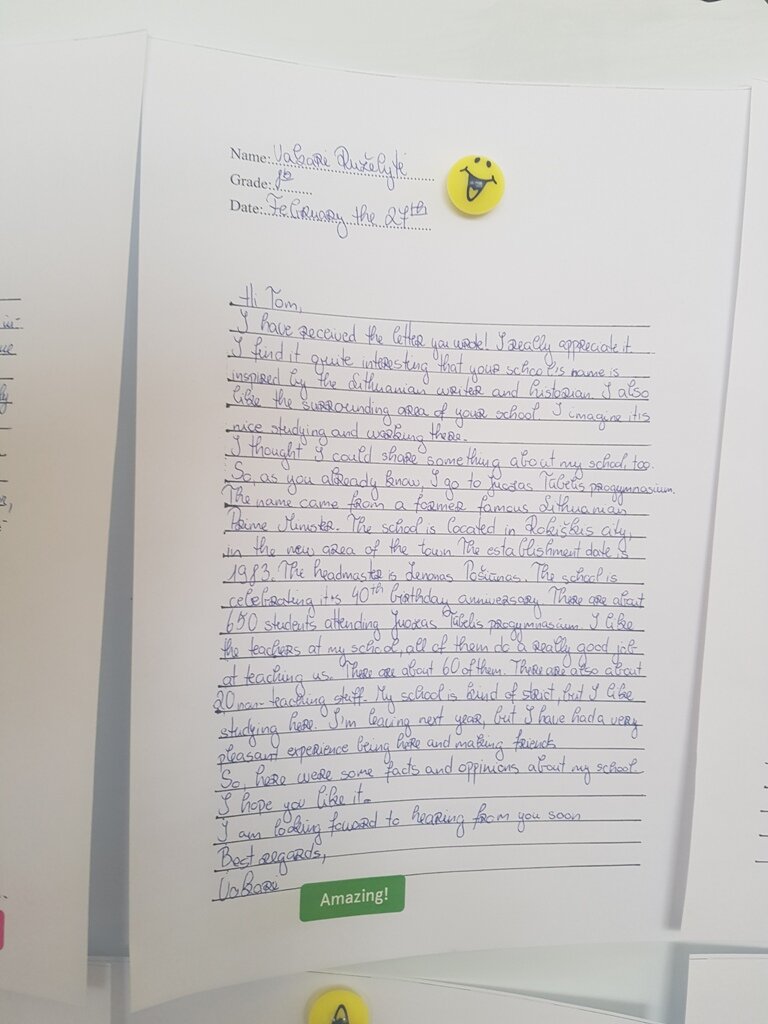 Name: Vakarė Ruželytė
Grade: 8b
Date: February the 27th
Hi Tom,
I have received the letter you wrote! I really appreciate it.
I find it quite interesting that your school's name is
inspired by the Lithuanian writer and historian. I also
like the surrounding area of your school. I imagine it is
nice studying and working there.
I thought I could share something about my school, too.
So, as you already know, I go to Juozas Tūbelis progymnasium.
The name came from a former famous Lithuanian
Prime Minister. The school is located in Rokiškis city,
in the new area of the town. The establishment date is
1983. The headmaster is Zenonas Pošiūnas. The school is
celebrating it's 40th birthday anniversary. There are about
650 students attending Juozas Tūbelis progymnasium. I like
the teachers at my school, all of them do a really good job
at teaching us. There are about 60 of them. There are also about
20 non-teaching stuff. My school is kind of strict, but I like
studying here. I'm leaving next year, but I have had a very
pleasant experience being here and making friends.
So, here were some facts and oppinions about my school.
I hope you like it.
I am looking foward to hearing from you soon
Best regards,
Vakarė
Amazing!